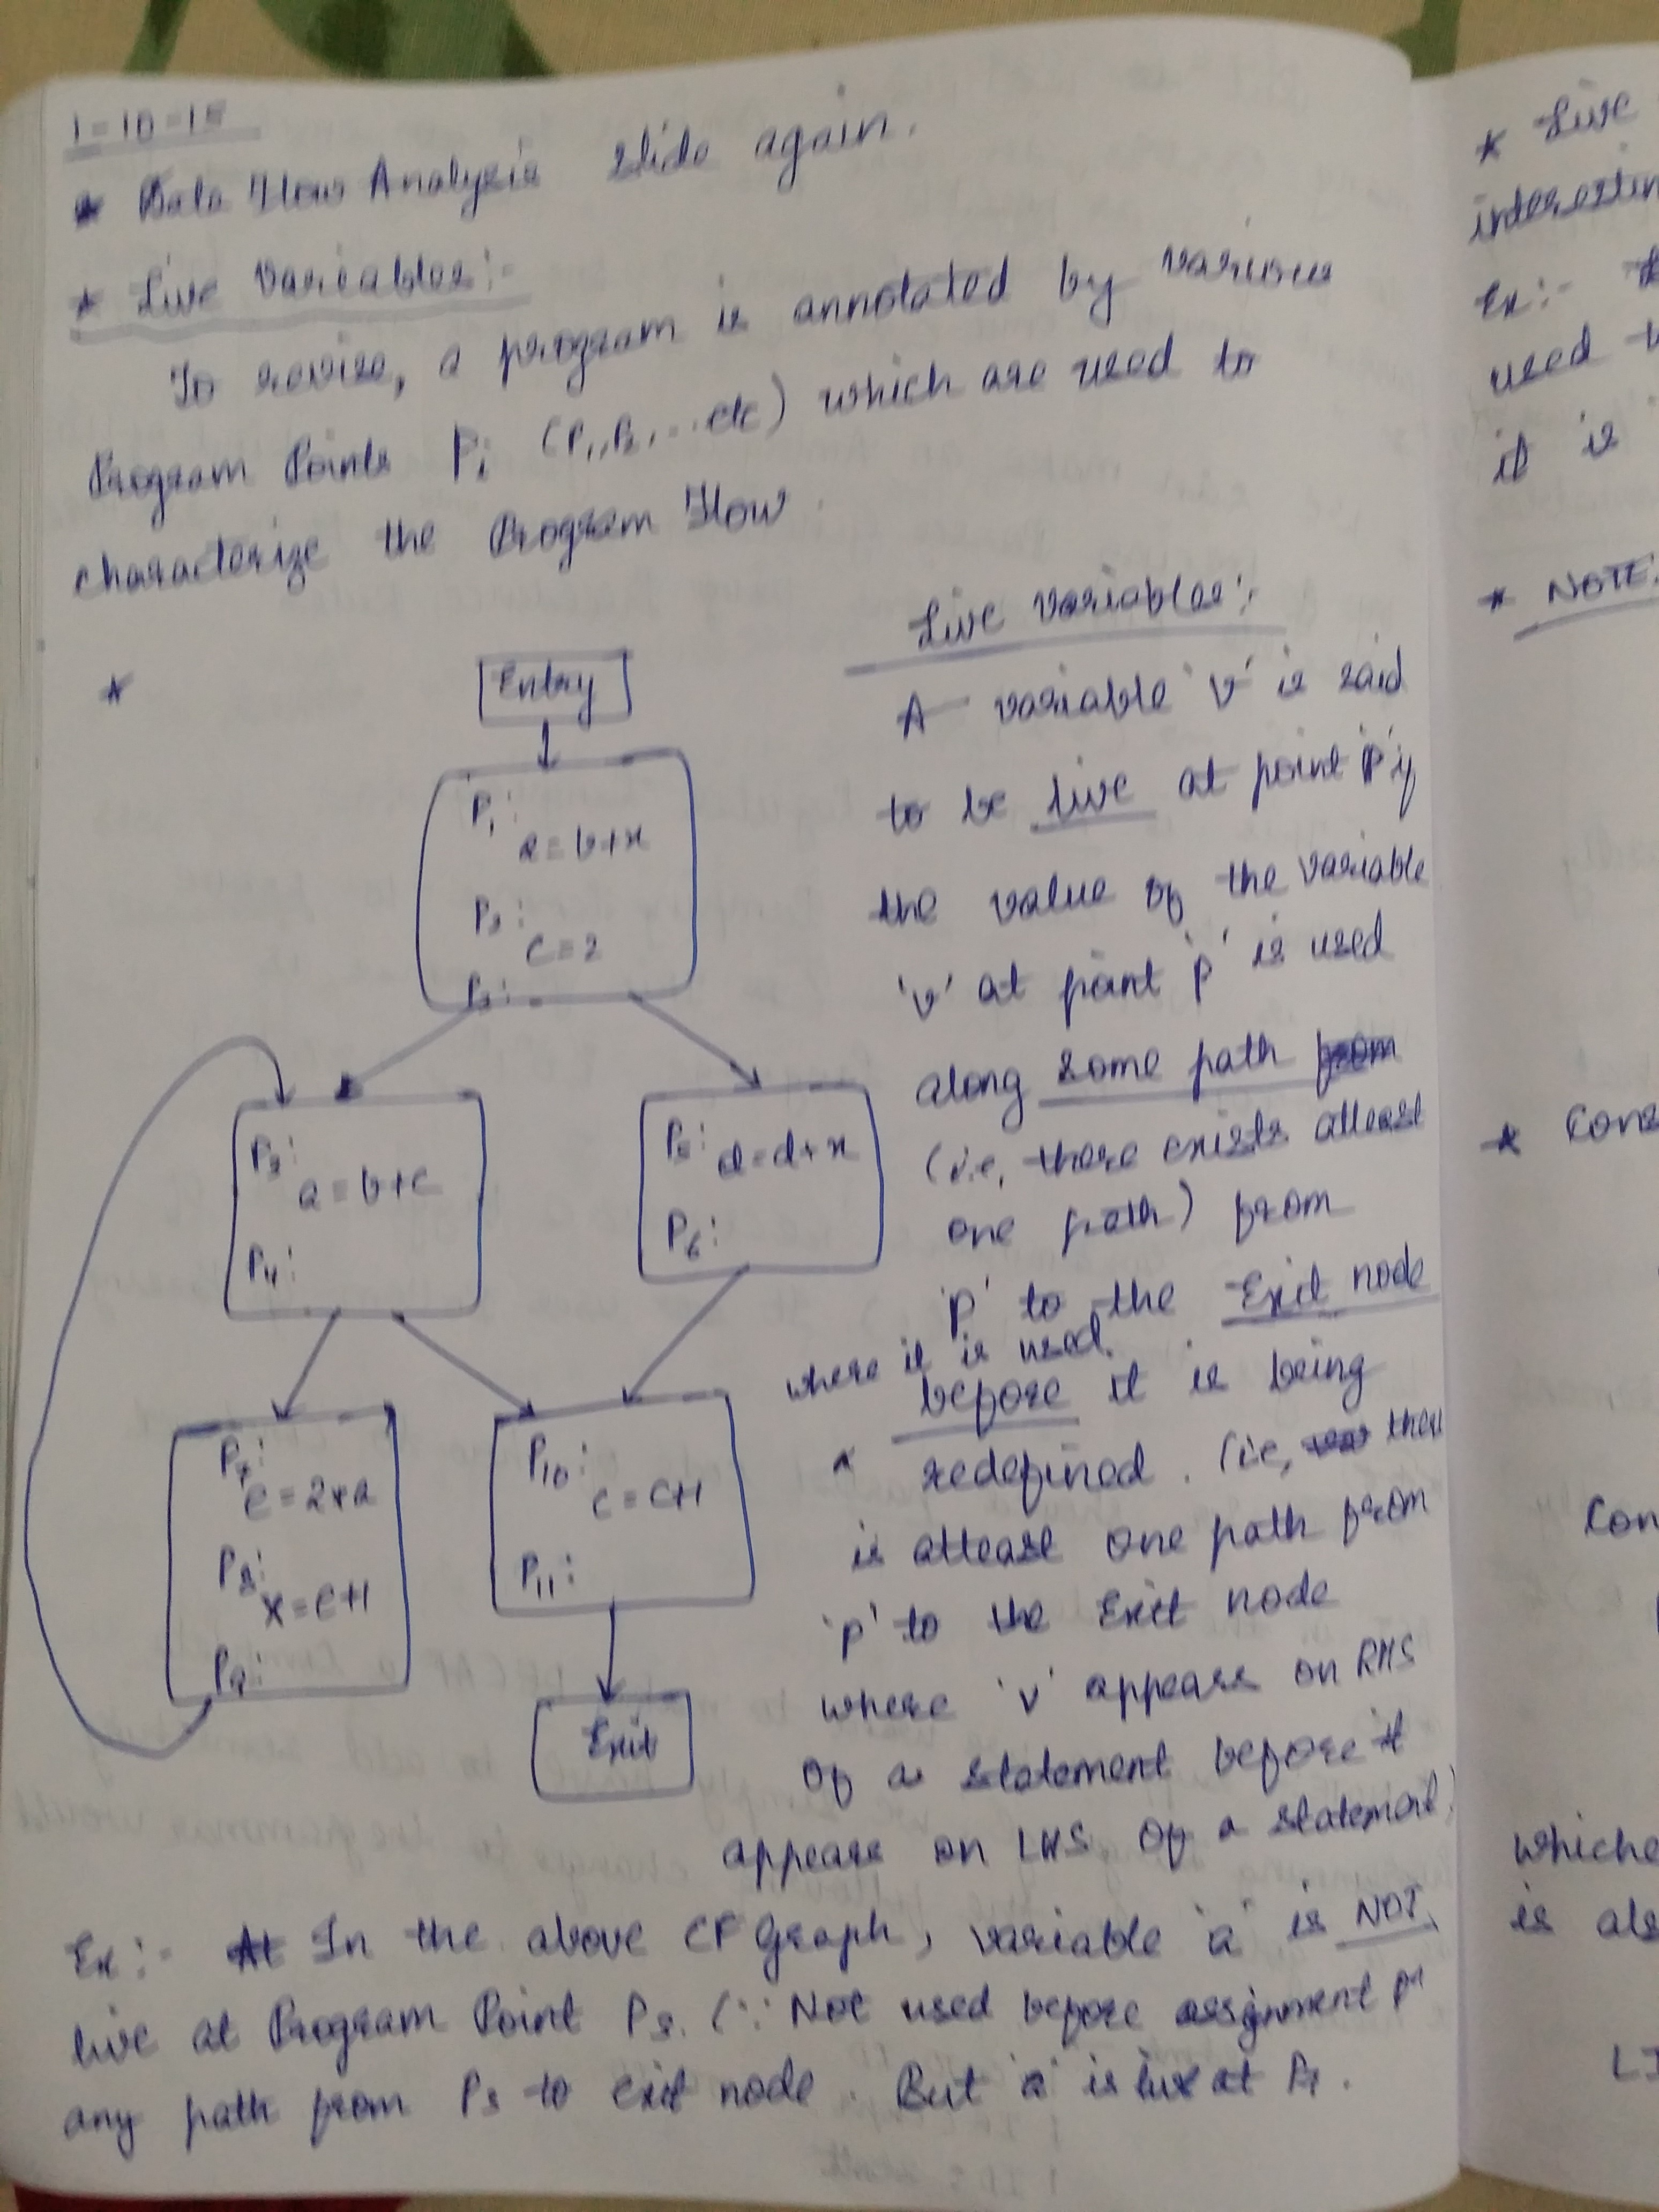 1-10-15
* Data Flow Analysis slide again.
* Live Variables:-
To revise, a program is annotated by various
Program Points Pi (P1, P2, ... etc) which are used to
characterize the Program Flow.
*
Entry
P1:
a = b+x
P2:
c = 2
P3:
P3:
a = b+c
P4:
P5: d = d+x
P6:
P7:
e = 2*a
P8:
x = e+1
P9:
P10:
c = c+1
P11:
Exit
Live variables:-
A variable 'v' is said
to be live at point 'P' if
the value of the variable
'v' at point 'p' is used
along some path from
(i.e, there exists atleast
one path) from
'p' to the Exit node
where it is used
before it is being
redefined. (ie, there
is atleast one path from
'p' to the Exit node
where 'v' appears on RHS
of a statement before it
appears on LHS of a statement)
Ex:- At In the above CF Graph, variable 'a' is NOT
live at Program Point P8. (∵ Not used before assignment
any path from P8 to exit node. But 'a' is live at P7.
* Live
Ex:-
used
it is
* NOTE:
* Cons
Con
is als